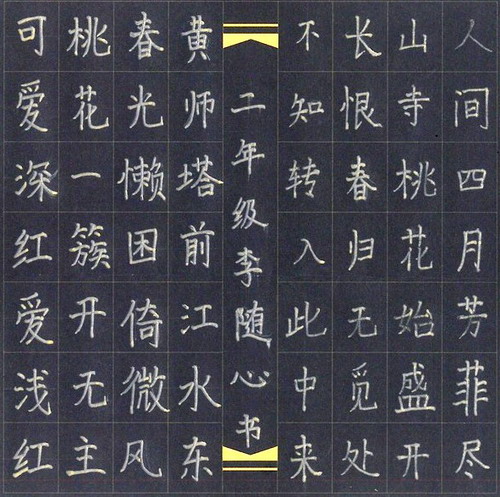 人间四月芳菲尽
山寺桃花始盛开
长恨春归无觅处
不知转入此中来
二年级李随心书
黄师塔前江水东
春光懒困倚微风
桃花一簇开无主
可爱深红爱浅红